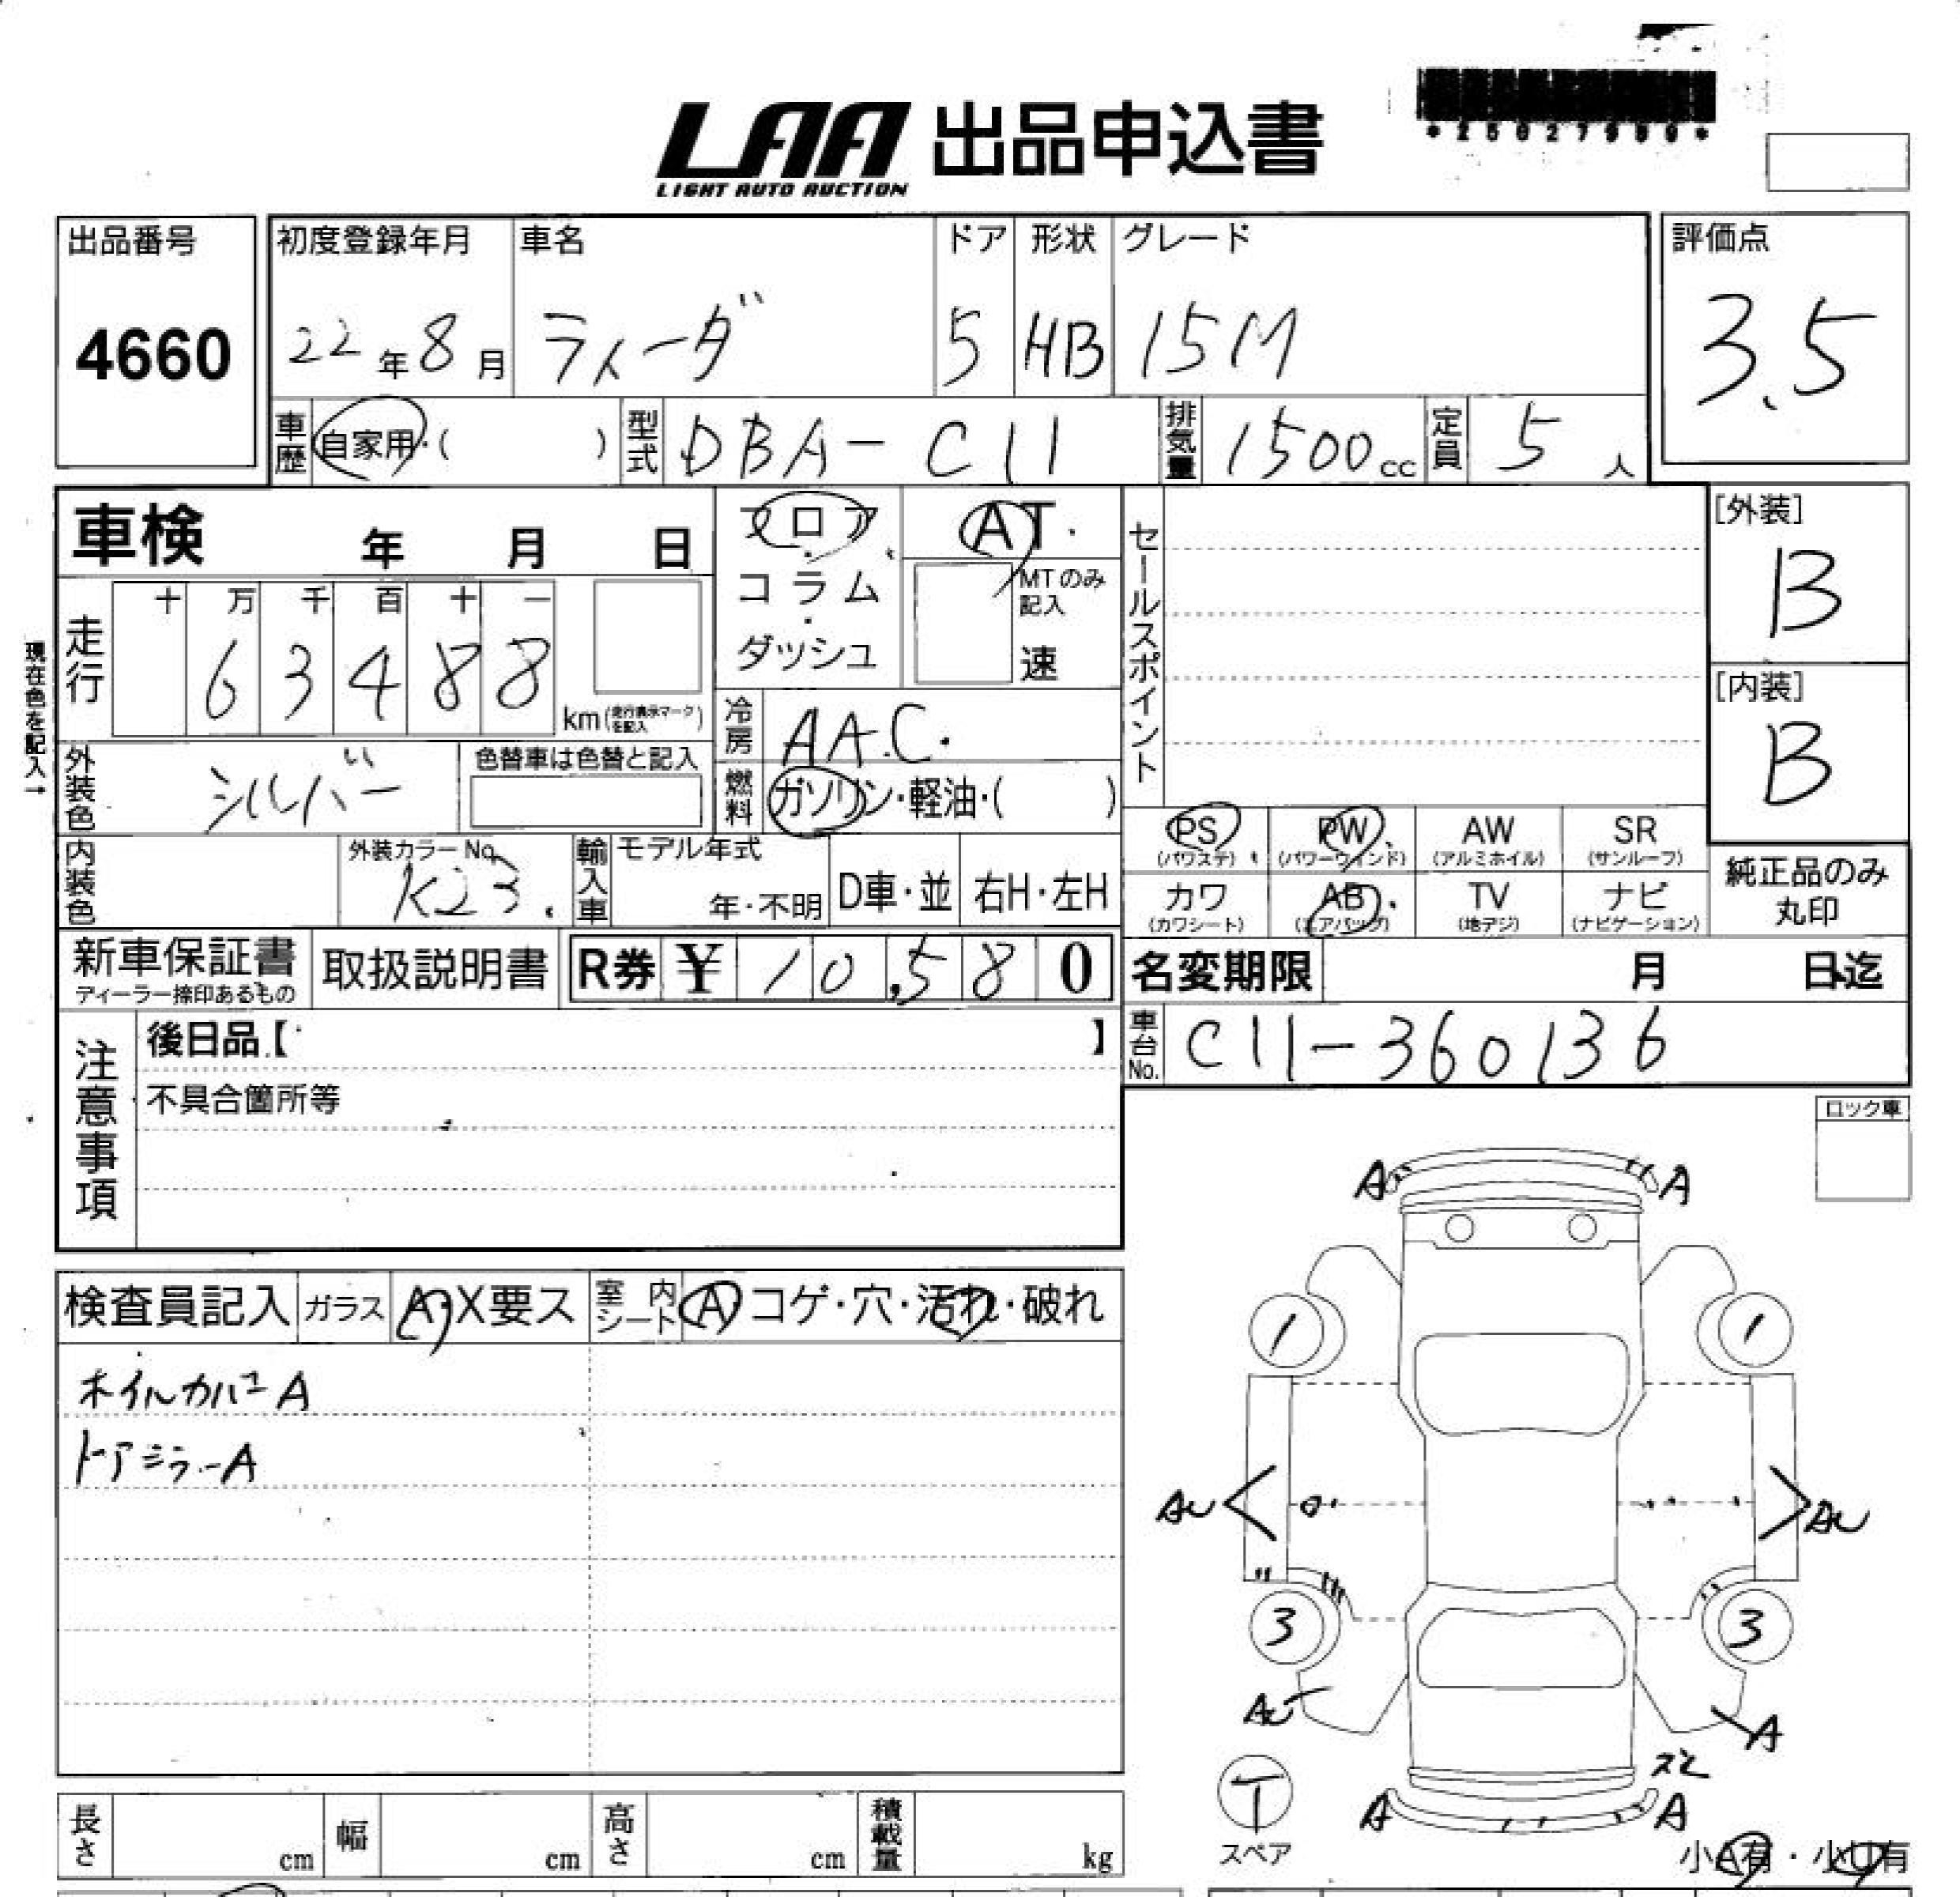 *25027989*
LAA 出品申込書
LIGHT AUTO AUCTION
出品番号 初度登録年月 車名 ドア 形状 グレード 評価点
4660 22年8月 ティーダ 5 HB 15M 3.5
車歴 自家用・( ) 型式 DBA-C11 排気量 1500cc 定員 5人
車検 年 月 日
フロア・コラム・ダッシュ
AT・
MTのみ記入
速
セールスポイント
[外装]
B
[内装]
B
現在色を記入→
走行 十 万 千 百 十 一
6 3 4 8 8 km(走行表示マークを記入)
冷房 AAC.
外装色 シルバー 色替車は色替と記入
燃料 ガソリン・軽油・( )
内装色 外装カラーNo. K23. 輸入車 モデル年式 年・不明 D車・並 右H・左H
PS PW AW SR
(パワステ) (パワーウインド) (アルミホイル) (サンルーフ)
カワ AB TV ナビ
(カワシート) (エアバッグ) (地デジ) (ナビゲーション)
純正品のみ
丸印
新車保証書 取扱説明書 R券 ¥ 10,580
ディーラー捺印あるもの
名変期限 月 日迄
車台No. C11-360136
注意事項
後日品【 】
不具合箇所等
ロック車
検査員記入 ガラス A・X要ス 室内シート A コゲ・穴・汚れ・破れ
ホイルカバーA
ドアミラーA
A A
1 1
AU AU
3 3
AU A
T
スペア
A A
小A有・小U有
長さ cm 幅 cm 高さ cm 積載量 kg